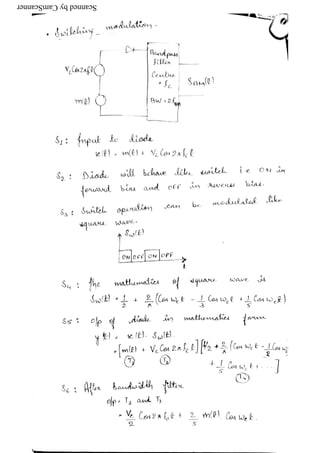 Scanned by CamScanner
• Switching modulation -
Bandpass
filter
Vc Cos 2πfct
Centre
= fc
SAM(t)
m(t)
BW = 2fm
S1 : Input to diode
x(t) = m(t) + Vc Cos 2πfct
S2 : Diode will behave like switch i.e ON in
forward bias and OFF in reverse bias.
S3 : Switch operation can be modulated like
square wave.
Sw(t)
ON OFF ON OFF
t
S4 : The mathematics of square wave is
Sw(t) = 1/2 + 2/π (Cos wct - 1/3 Cos wct + 1/5 Cos wct)
S5 : o/p of diode in mathematics form
y(t) = x(t). Sw(t).
= [m(t) + Vc Cos 2πfct] [1/2 + 2/π (Cos wct - 1/3 Cos wc
T1 T2
+ 1/5 Cos wct + . . . ]
S6 : After bandwidth filter
o/p = T2 and T3
= Vc/2 Cos 2πfct + 2/π m(t) Cos wct.